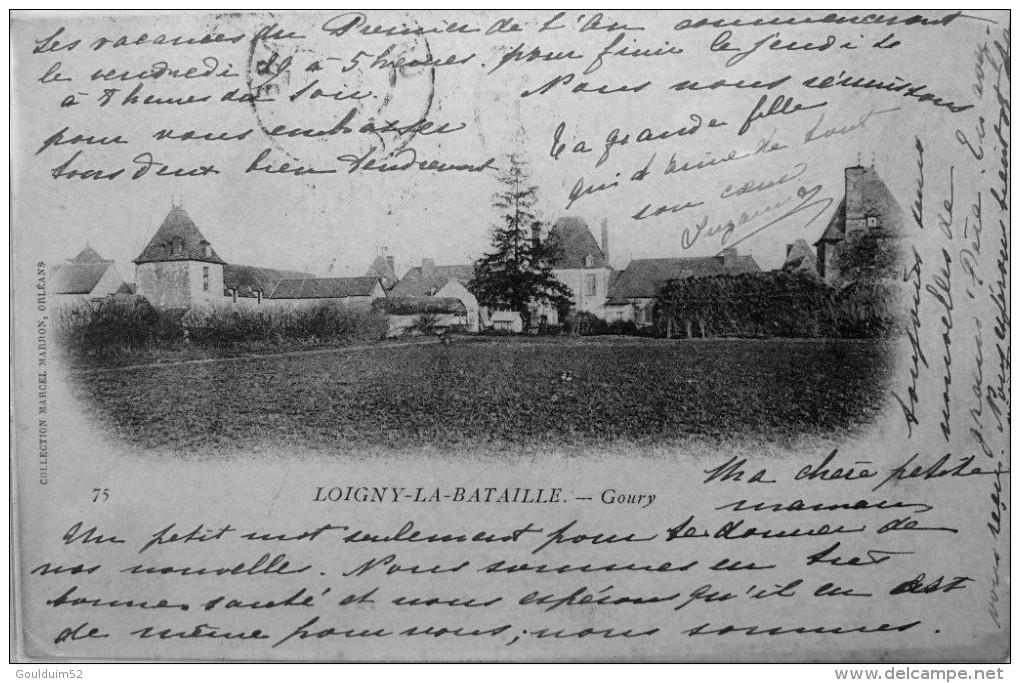 Ma chère petite
maman
Un petit mot seulement pour te donner de
nos nouvelles. Nous sommes en très
bonne santé et nous espérons qu'il en est
de même pour vous; nous sommes
toujours sans
nouvelles de
grand' Père. En avez-
vous reçu. Nous espérons bientôt
Les vacances du Premier de l'An commenceront
le vendredi 29 à 5 heures. pour finir le Jeudi 4
à 8 heures du soir. Nous nous réunissons
pour vous embrasser
tous deux bien tendrement
Ta grande fille
qui t'aime de tout
son cœur
Suzanne
75 LOIGNY-LA-BATAILLE. — Goury
COLLECTION MARCEL MARRON, ORLÉANS
Goulduim52
www.delcampe.net